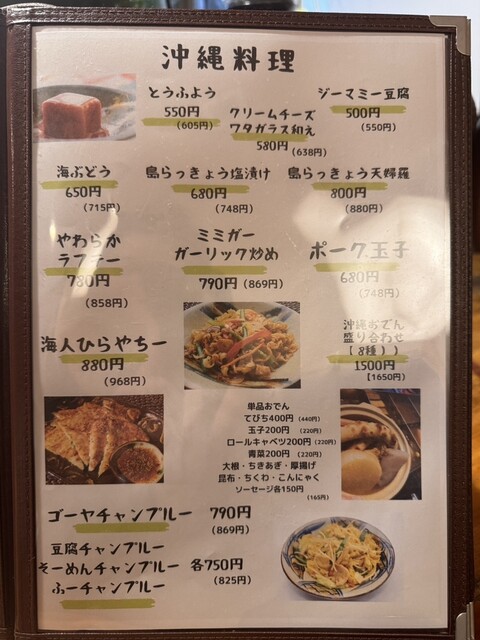 沖縄料理
とうふよう
550円
(605円)
クリームチーズ
ワタガラス和え
580円 (638円)
ジーマミー豆腐
500円
(550円)
海ぶどう
650円
(715円)
島らっきょう塩漬け
680円
(748円)
島らっきょう天婦羅
800円
(880円)
やわらか
ラフテー
780円
(858円)
ミミガー
ガーリック炒め
790円 (869円)
ポーク玉子
680円
(748円)
海人ひらやちー
880円
(968円)
沖縄おでん
盛り合わせ
【8種】)
1500円
【1650円】
単品おでん
てびち400円 (440円)
玉子200円 (220円)
ロールキャベツ200円 (220円)
青菜200円 (220円)
大根・ちきあぎ・厚揚げ
昆布・ちくわ・こんにゃく
ソーセージ各150円
(165円)
ゴーヤチャンプルー 790円
(869円)
豆腐チャンプルー
そーめんチャンプルー 各750円
(825円)
ふーチャンプルー